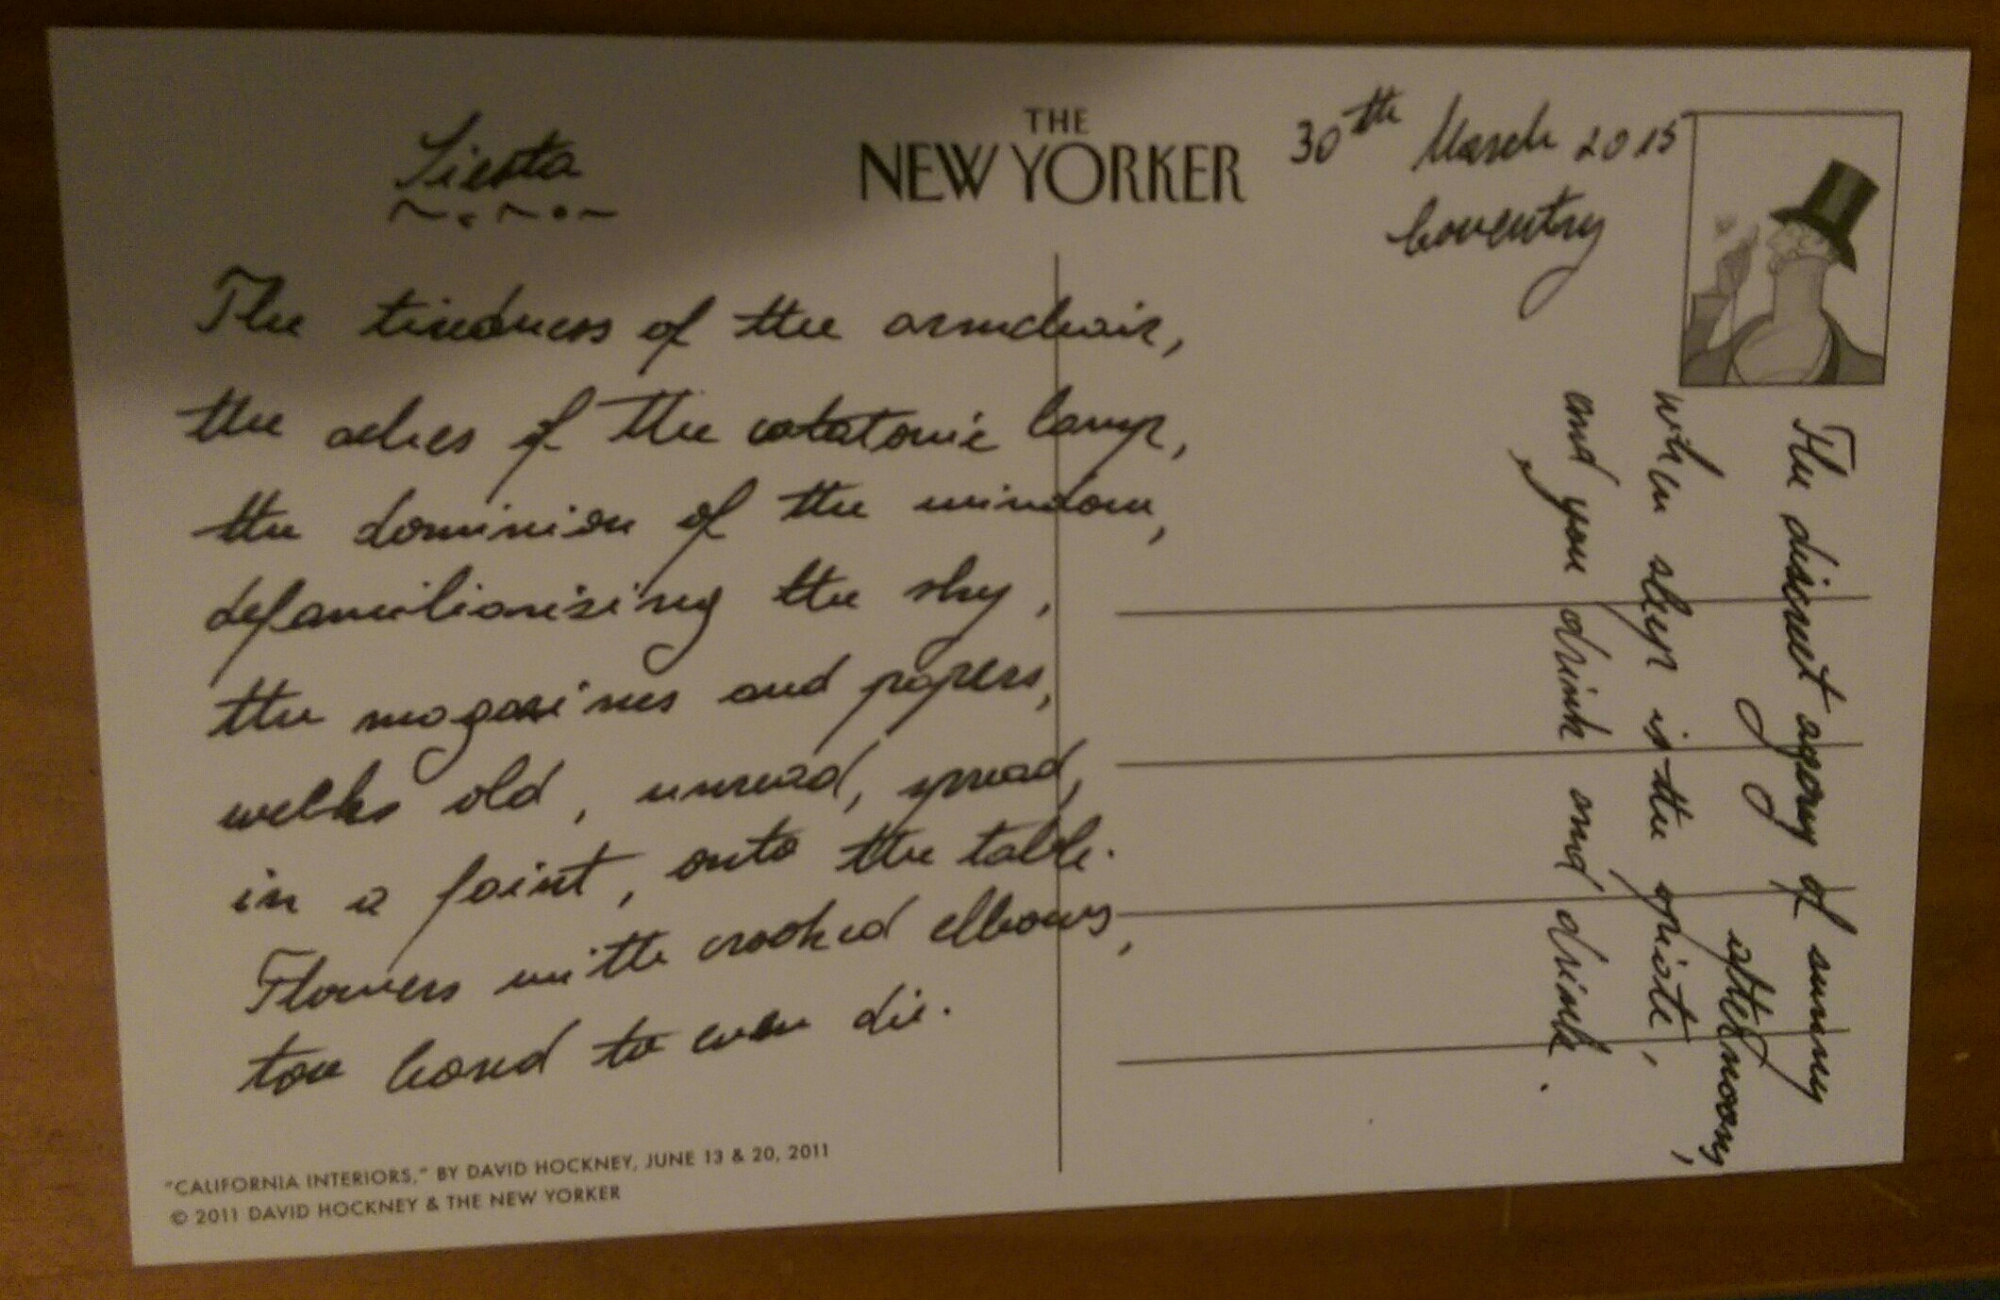 Siesta
THE
NEW YORKER
30th March 2015
Coventry
The tiredness of the armchair,
the aches of the catatonic lamp,
the dominion of the window,
defamiliarising the sky,
the magazines and papers,
weeks old, unread, spread,
in a faint, onto the table.
Flowers with crooked elbows,
too bored to even die.
The discreet agony of sunny
afternoons,
when sleep is the opiate,
and you drink and drink.
"CALIFORNIA INTERIORS," BY DAVID HOCKNEY, JUNE 13 & 20, 2011
© 2011 DAVID HOCKNEY & THE NEW YORKER